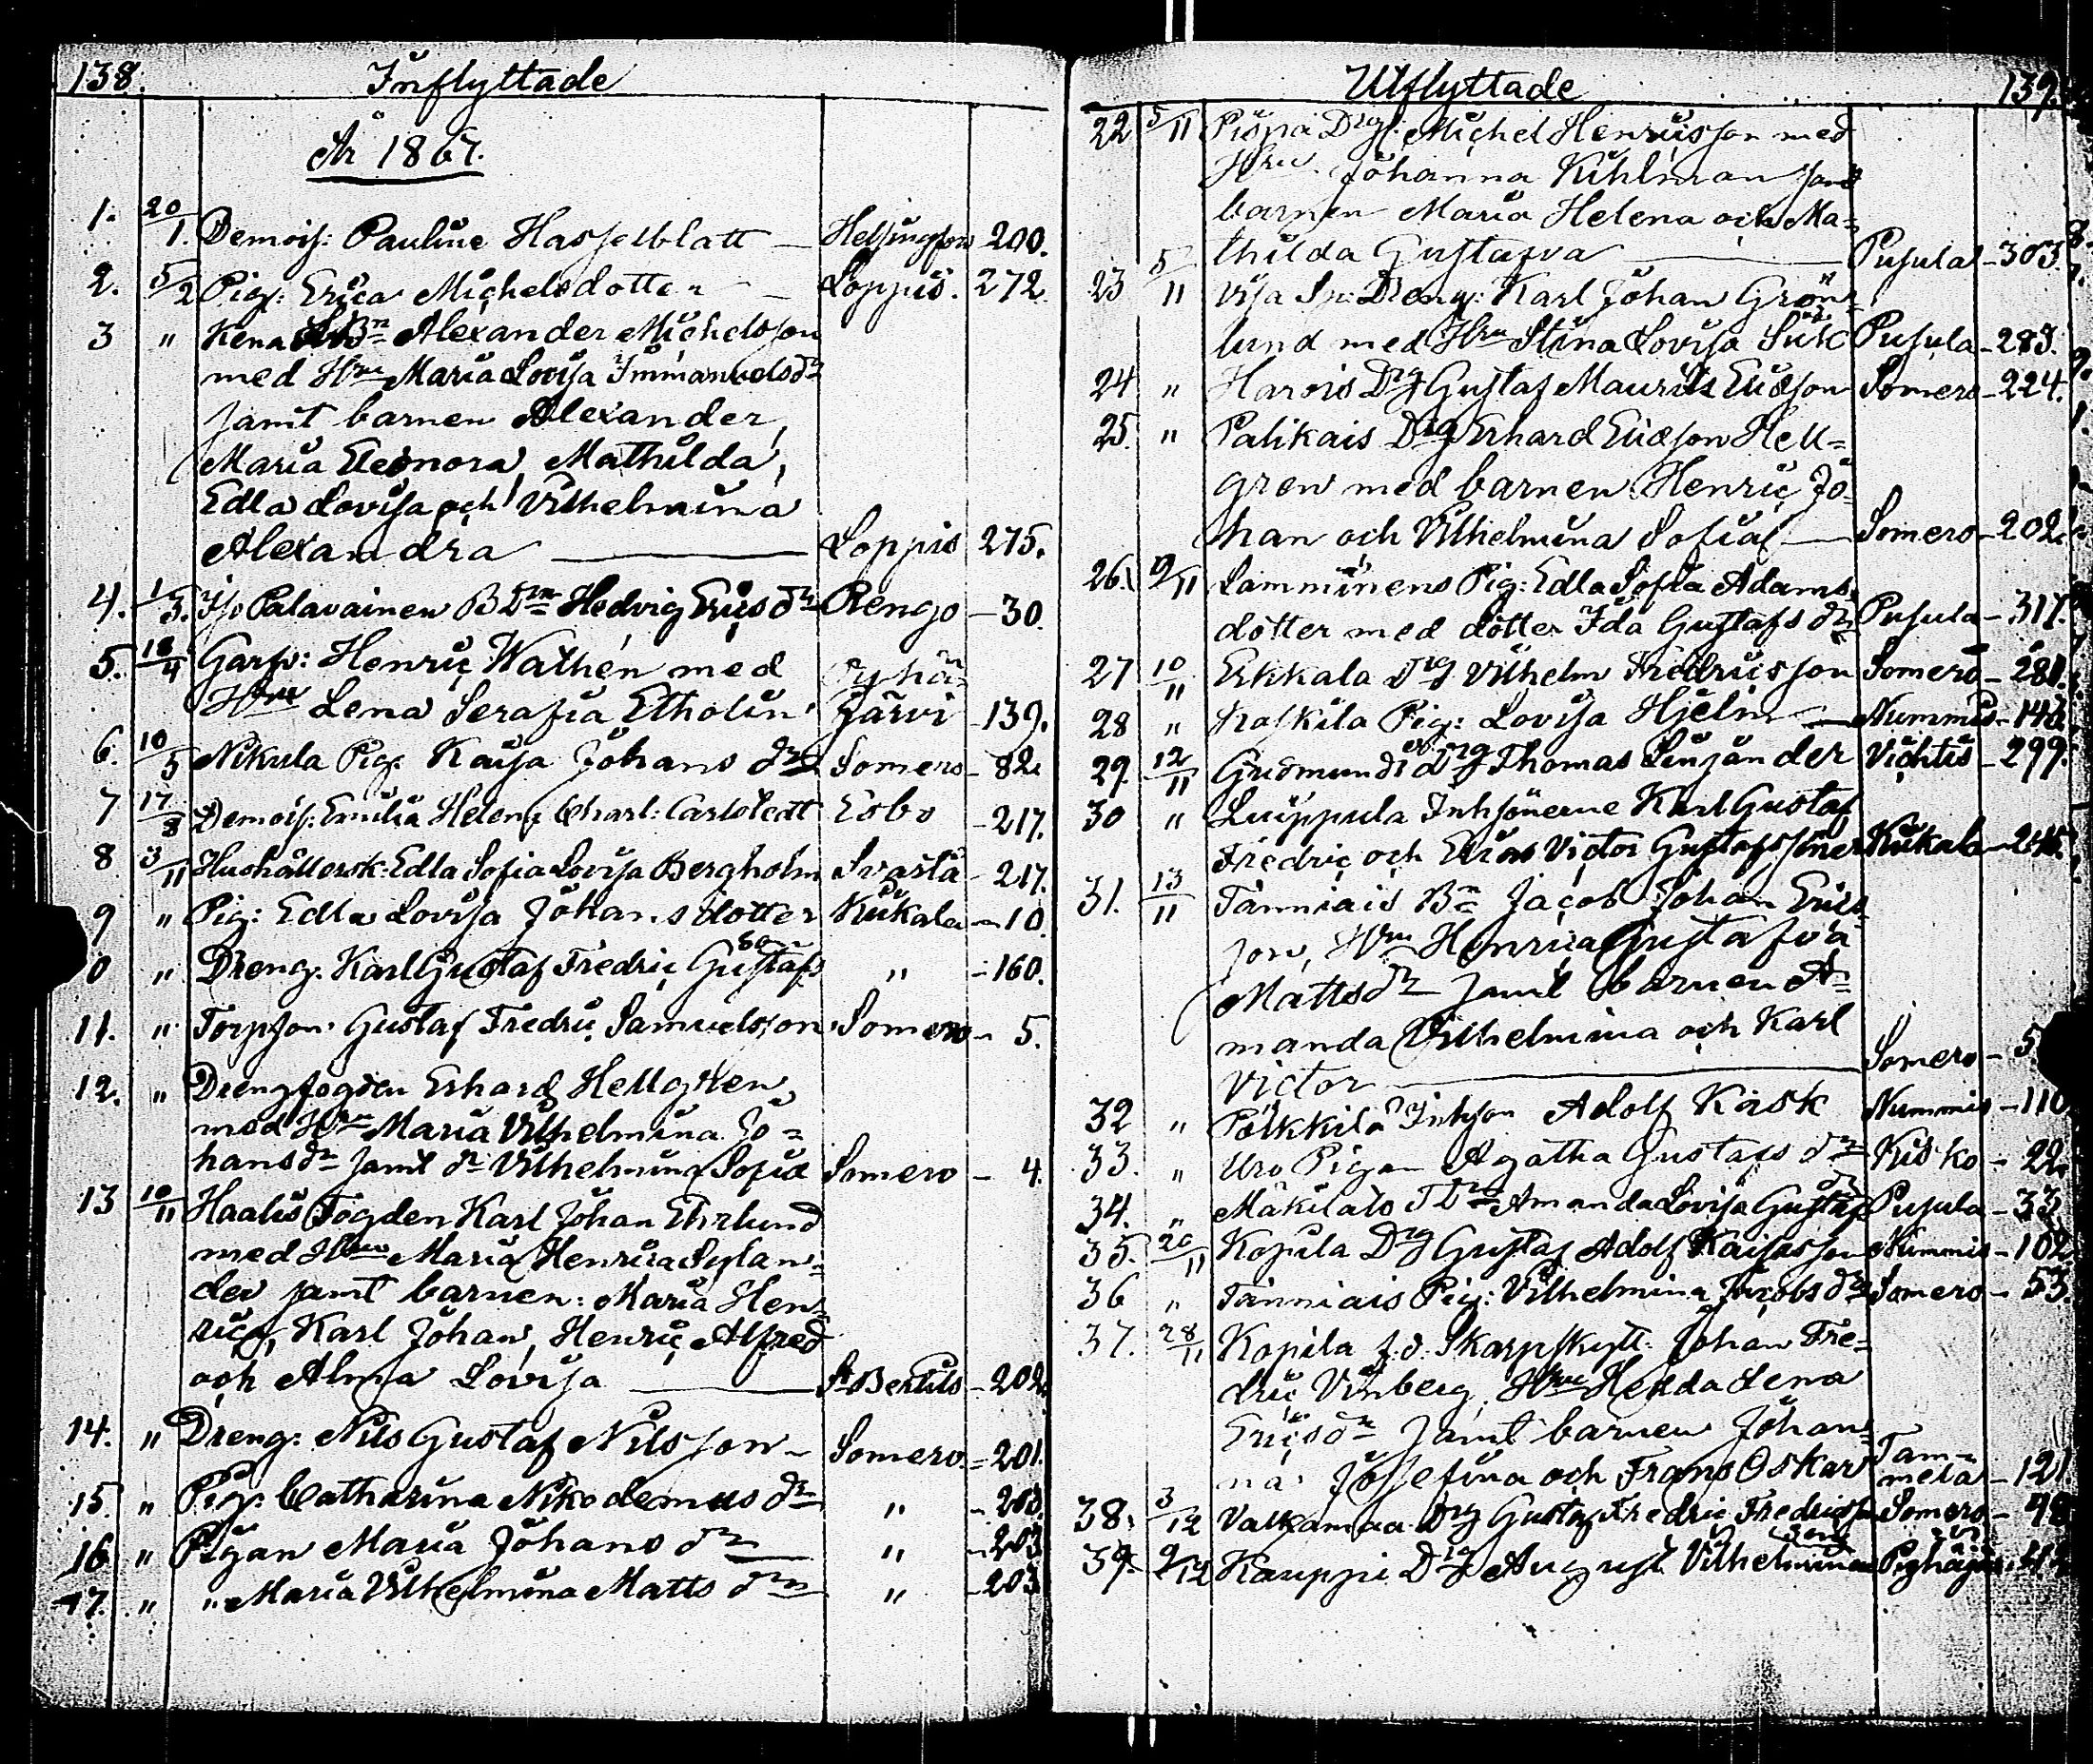 138.
Inflyttade
År 1867.
1. 20/1. Demois: Pauline Hasselblatt — Helsingfors 200.
2. 5/2 Pig: Erica Michelsdotter — Loppis. 272.
3 " Kena Bn Alexander Michelsson
med Hru Maria Lovisa Immanuelsdr
samt barnen Alexander,
Maria Eleonora, Mathilda,
Edla Lovisa och Vilhelmina
Alexandra — Loppis 275.
4. 1/3. Palavainen BDr Hedvig Ericsdr Rengo — 30.
5. 18/4 Garfv: Henric Wathén med Pyhä-
Hru Lena Serafia Etholin järvi — 139.
6. 10/5 Nikula Pig: Kaisa Johansdr Somero — 82.
7 17/8 Demois: Emilia Helena Charl: Carlstedt Esbo — 217.
8 3/11 Hushållersk: Edla Sofia Lovisa Bergholm Svartå — 217.
9 " Pig: Edla Lovisa Johansdotter Kiikala — 10.
0 " Dreng: Karl Gustaf Fredric Gustafsson " — 160.
11. " Torpson Gustaf Fredric Samuelsson Somero — 5.
12. " Drengfogden Erhard Hellgren
med Hru Maria Vilhelmina Jo=
hansdr samt dr Vilhelmina Sofia Somero — 4.
13 10/11 Haalis Fogden Karl Johan Ehrlund
med Hru Maria Henrica Sylan=
der samt barnen: Maria Hen=
rica, Karl Johan, Henric Alfred
och Alma Lovisa — St Bertils — 202.
14. " Dreng: Nils Gustaf Nilsson — Somero — 201.
15 " Pig: Catharina Nikodemusdr " — 203.
16 " Pigan Maria Johansdr " — 203
17. " " Maria Vilhelmina Mattsdr " — 203
Utflyttade
139.
22 5/11 Pispa Drg: Michel Henricsson med
Hru Johanna Kihlman samt
barnen Maria Helena och Ma=
thilda Gustafva — Pusula — 303.
23 5/11 Dreng: Karl Johan Grön=
lund med Hru Stina Lovisa Pusula — 283.
24 " Harois Drg Gustaf Maurits Ericsson Somero — 224.
25. " Palikais Drg Erhard Ericsson Hell=
gren med barnen Henric Jo=
han och Vilhelmina Sofia — Somero — 202.
26. 9/11 Lamminens Pig: Edla Sofia Adams=
dotter med dotter Ida Gustafsdr Pusula — 317.
27 10/11 Erkkala Drg Vilhelm Fredricsson Somero — 281.
28 " Koskila Pig: Lovisa Hjelm — Nummis — 143.
29. 12/11 Gudmundi Drg Thomas Sinjander Vichtis — 299.
30 " Luippula Inhsönerne Karl Gustaf
Fredric och Elias Victor Gustafssöner Kiikala —
31. 13/11 Tanniais Bn Jacob Johan Erics=
son, Hru Henrica Gustafva
Mattsdr samt barnen A=
manda Vilhelmina och Karl
Victor — Somero — 5
32 " Pölkkilä Inhson Adolf Kask Nummis — 110
33. " Uro Pigan Agatha Gustafsdr Kisko — 22.
34. " Mäkilato TDr Amanda Lovisa Gustafsdr Pusula — 33
35. 20/11 Kopila Drg Gustaf Adolf Kaisasson Nummis — 102.
36 " Tanniais Pig: Vilhelmina Jacobsdr Somero — 53.
37. 28/11 Kopila f.d. Skarpskytt: Johan Fre=
dric Vinberg, Hru Hedda Lena
Ericsdr samt barnen Johan=
na Josefina och Frans Oskar Tam=
mela — 121
38. 3/12 Valkjamaa Drg Gustaf Fredric Fredricsson Somero — 48
39. 9/12 Kauppi Drg August Vilhelminasson Pyhäjärvi